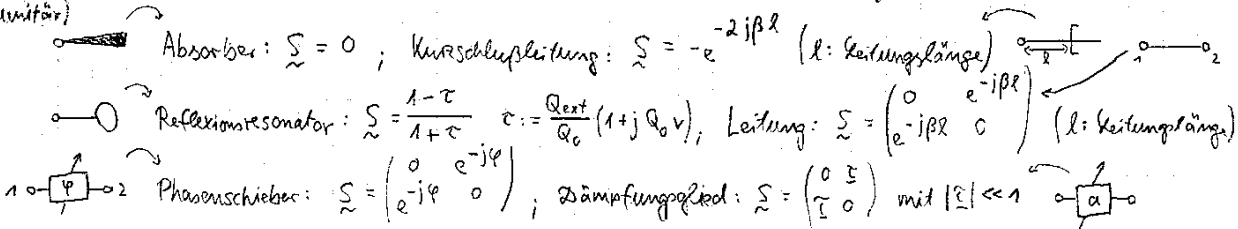 unitär)
Absorber: S = 0 ; Kurzschlußleitung: S = -e^{-2jβl} (l: Leitungslänge) l 1 2
Reflexionsresonator: S = \frac{1-τ}{1+τ} τ := \frac{Q_{ext}}{Q_0} (1+j Q_0 v), Leitung: S = \begin{pmatrix} 0 & e^{-jβl} \\ e^{-jβl} & 0 \end{pmatrix} (l: Leitungslänge)
1 φ 2 Phasenschieber: S = \begin{pmatrix} 0 & e^{-jφ} \\ e^{-jφ} & 0 \end{pmatrix} ; Dämpfungsglied: S = \begin{pmatrix} 0 & τ \\ τ & 0 \end{pmatrix} mit |τ| << 1 a